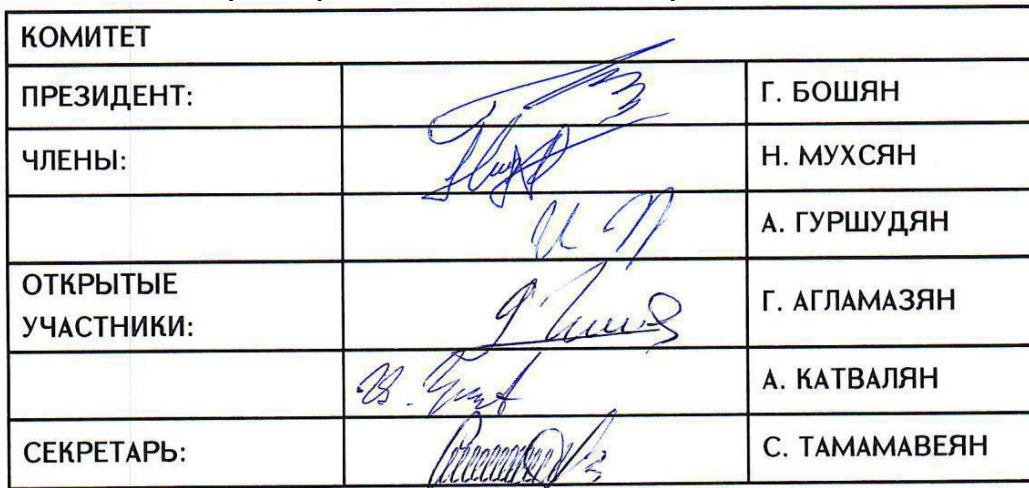 КОМИТЕТ
ПРЕЗИДЕНТ: Г. БОШЯН
ЧЛЕНЫ: Н. МУХСЯН
А. ГУРШУДЯН
ОТКРЫТЫЕ
УЧАСТНИКИ: Г. АГЛАМАЗЯН
А. КАТВАЛЯН
СЕКРЕТАРЬ: С. ТАМАМАВЕЯН